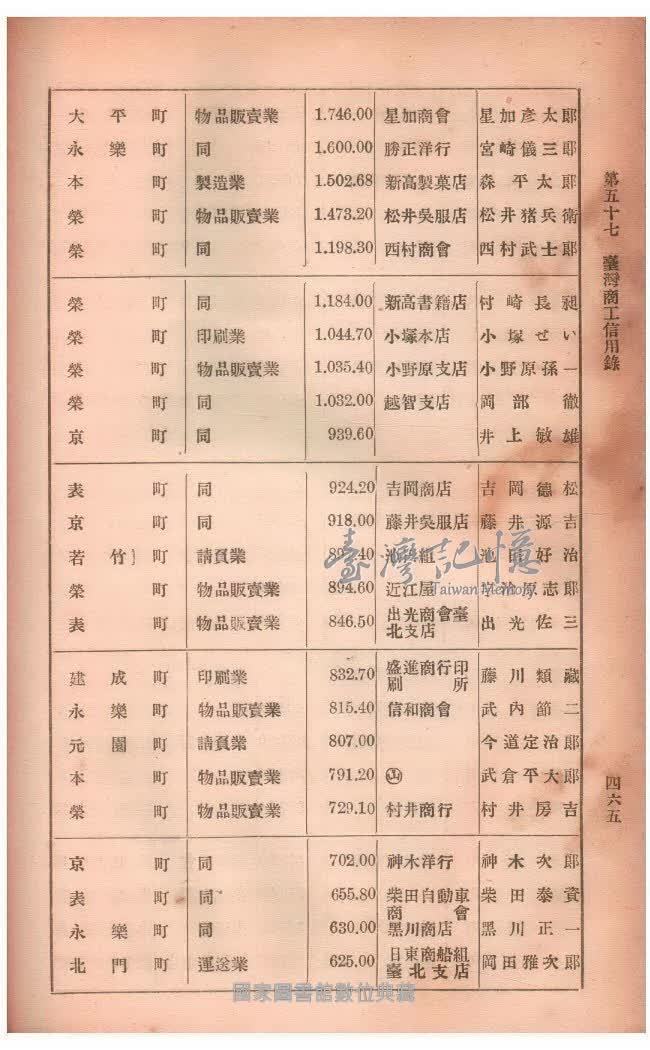 第五十七 臺灣商工信用錄
大平町 物品販賣業 1.746.00 星加商會 星加彥太郎
永樂町 同 1.600.00 勝正洋行 宮崎儀三郎
本町 製造業 1.502.68 新高製菓店 森平太郎
榮町 物品販賣業 1.473.20 松井吳服店 松井猪兵衛
榮町 同 1.198.30 西村商會 西村武士郎
榮町 同 1.184.00 新高書籍店 村崎長昶
榮町 印刷業 1.044.70 小塚本店 小塚せい
榮町 物品販賣業 1.035.40 小野原支店 小野原孫一
榮町 同 1.032.00 越智支店 岡部徹
京町 同 939.60 井上敏雄
表町 同 924.20 吉岡商店 吉岡德松
京町 同 918.00 藤井吳服店 藤井源吉
若竹町 請負業 組 池田好治
榮町 物品販賣業 894.60 近江屋 志郎
表町 物品販賣業 846.50 出光商會臺北支店 出光佐三
建成町 印刷業 832.70 盛進商行印刷所 藤川類藏
永樂町 物品販賣業 815.40 信和商會 武內節二
元園町 請負業 807.00 今道定治郎
本町 物品販賣業 791.20 武倉平大郎
榮町 物品販賣業 729.10 村井商行 村井房吉
京町 同 702.00 神木洋行 神木次郎
表町 同 655.80 柴田自動車商會 柴田泰資
永樂町 同 630.00 黑川商店 黑川正一
北門町 運送業 625.00 日東商船組臺北支店 岡田雅次郎
四六五
臺灣記憶
Taiwan Memory
國家圖書館數位典藏